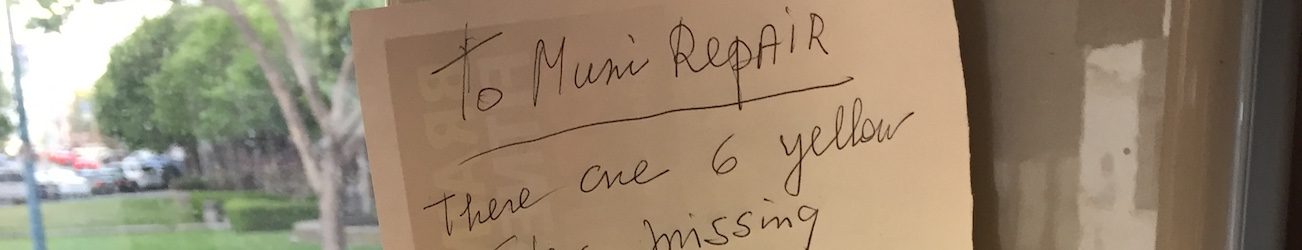 To Muni RepAiR
There are 6 yellow
missing